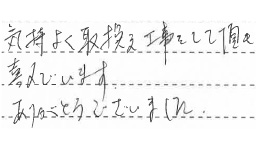 気持よく取換え工事をして頂き
喜んでいます。
ありがとうございました。